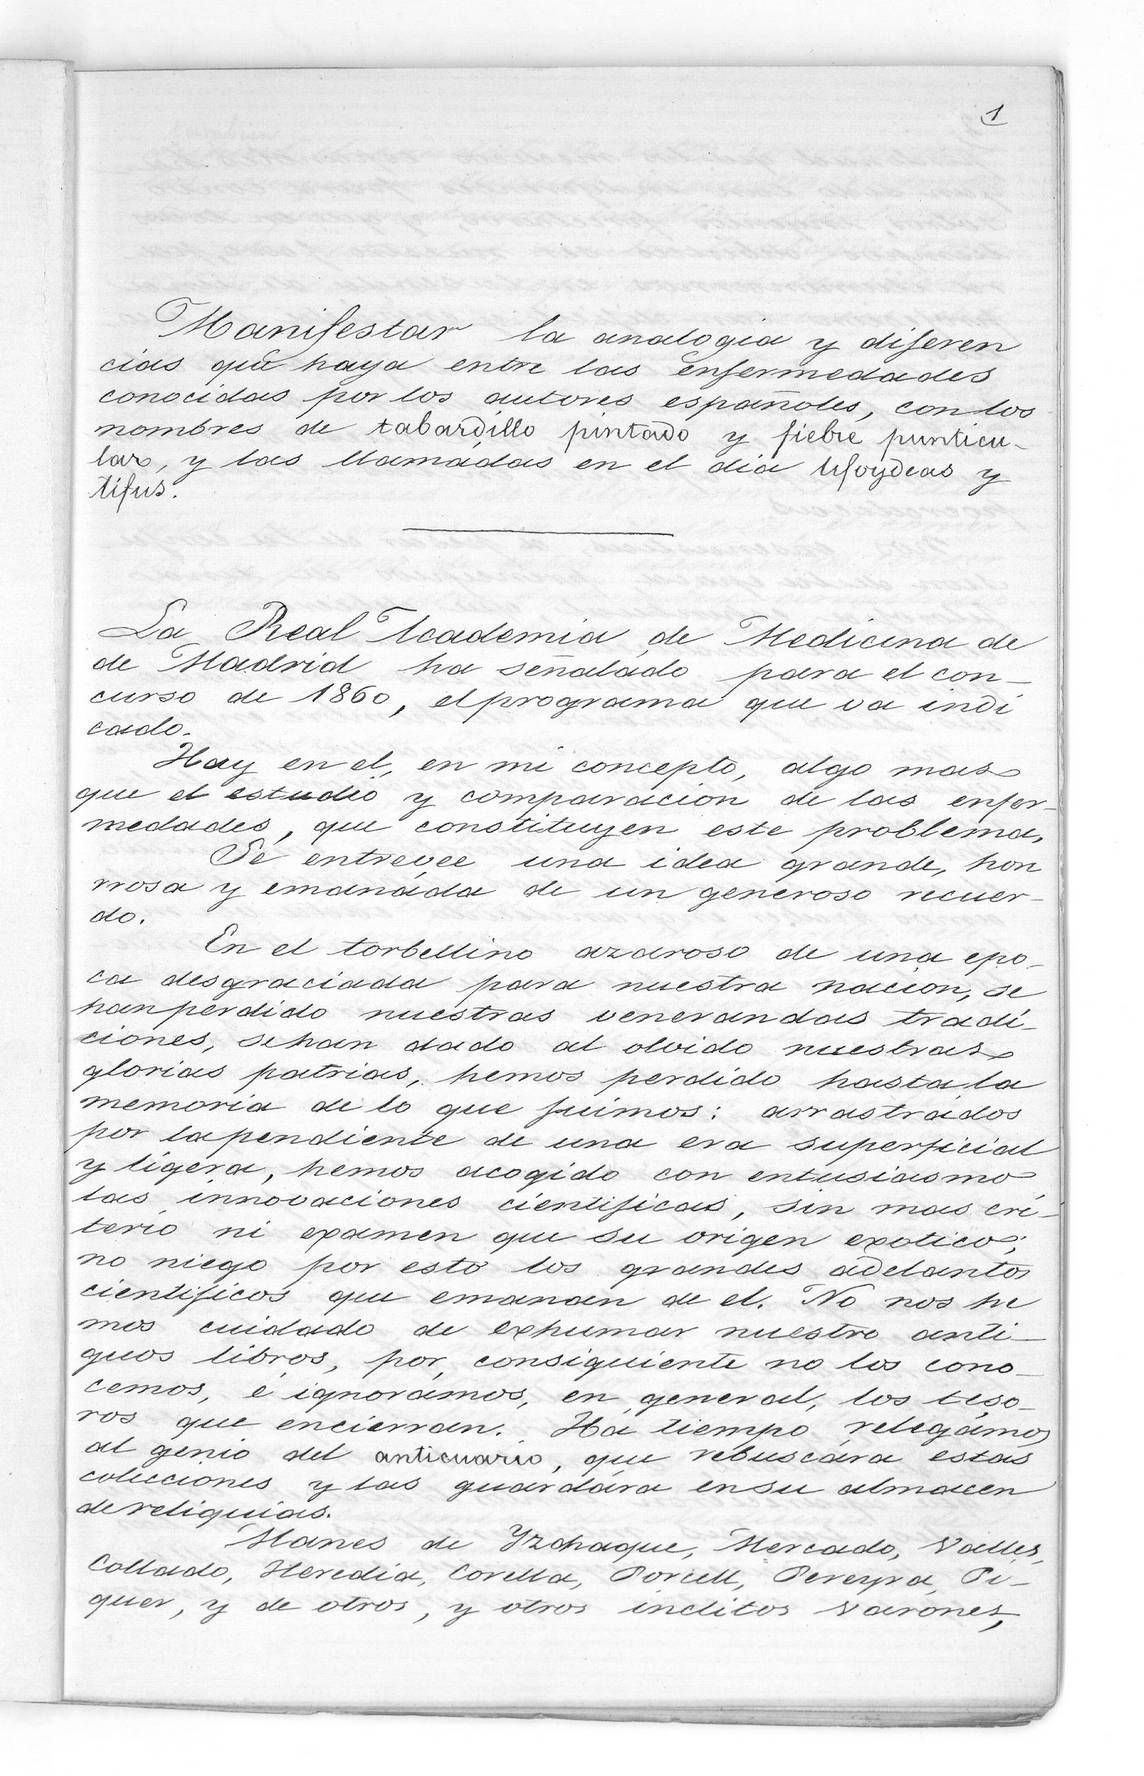 1
Manifestar la analogia y diferen
cias que haya entre las enfermedades
conocidas por los autores españoles, con los
nombres de tabardillo pintado y fiebre punticu-
lar, y las llamadas en el dia tifoydeas y
tifus.
La Real Academia de Medicina de
de Madrid ha señalado para el con-
curso de 1860, el programa que va indi
cado.
Hay en el, en mi concepto, algo mas
que el estudio y comparacion de las enfer-
medades, que constituyen este problema,
Se entrevee una idea grande, hon
rrosa y emanada de un generoso recuer-
do.
En el torbellino azaroso de una epo-
ca desgraciada para nuestra nacion, se
han perdido nuestras venerandas tradi-
ciones, se han dado al olvido nuestras
glorias patrias, hemos perdido hasta la
memoria de lo que fuimos: arrastrados
por la pendiente de una era superficial
y ligera, hemos acogido con entusiasmo
las innovaciones cientificas, sin mas cri-
terio ni examen que su origen exotico;
no niego por esto los grandes adelantos
cientificos que emanan de el. No nos he
mos cuidado de exhumar nuestro anti-
guos libros, por consiguiente no los cono-
cemos, é ignorámos, en general, los teso-
ros que encierran. Ha tiempo relegámos
al genio del anticuario, que rebuscára estas
colecciones y las guardára en su almacen
de reliquias.
Manes de Yzchaque, Mercado, Valles,
Collado, Heredia, Corella, Porcell, Pereyra, Pi-
quer, y de otros, y otros inclitos varones,